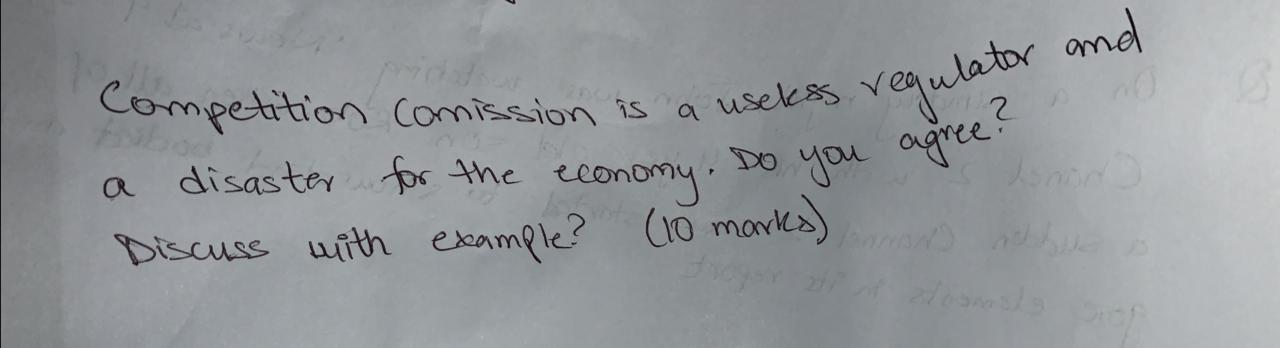 Competition Comission is a useless regulator and
a disaster for the economy. Do you agree?
Discuss with example? (10 marks)